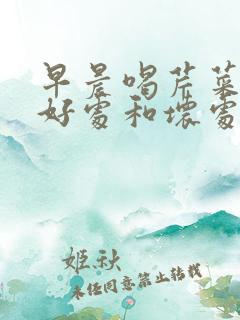 早晨喝芹菜
好處和壞處
姬秋
未任同意禁止转载